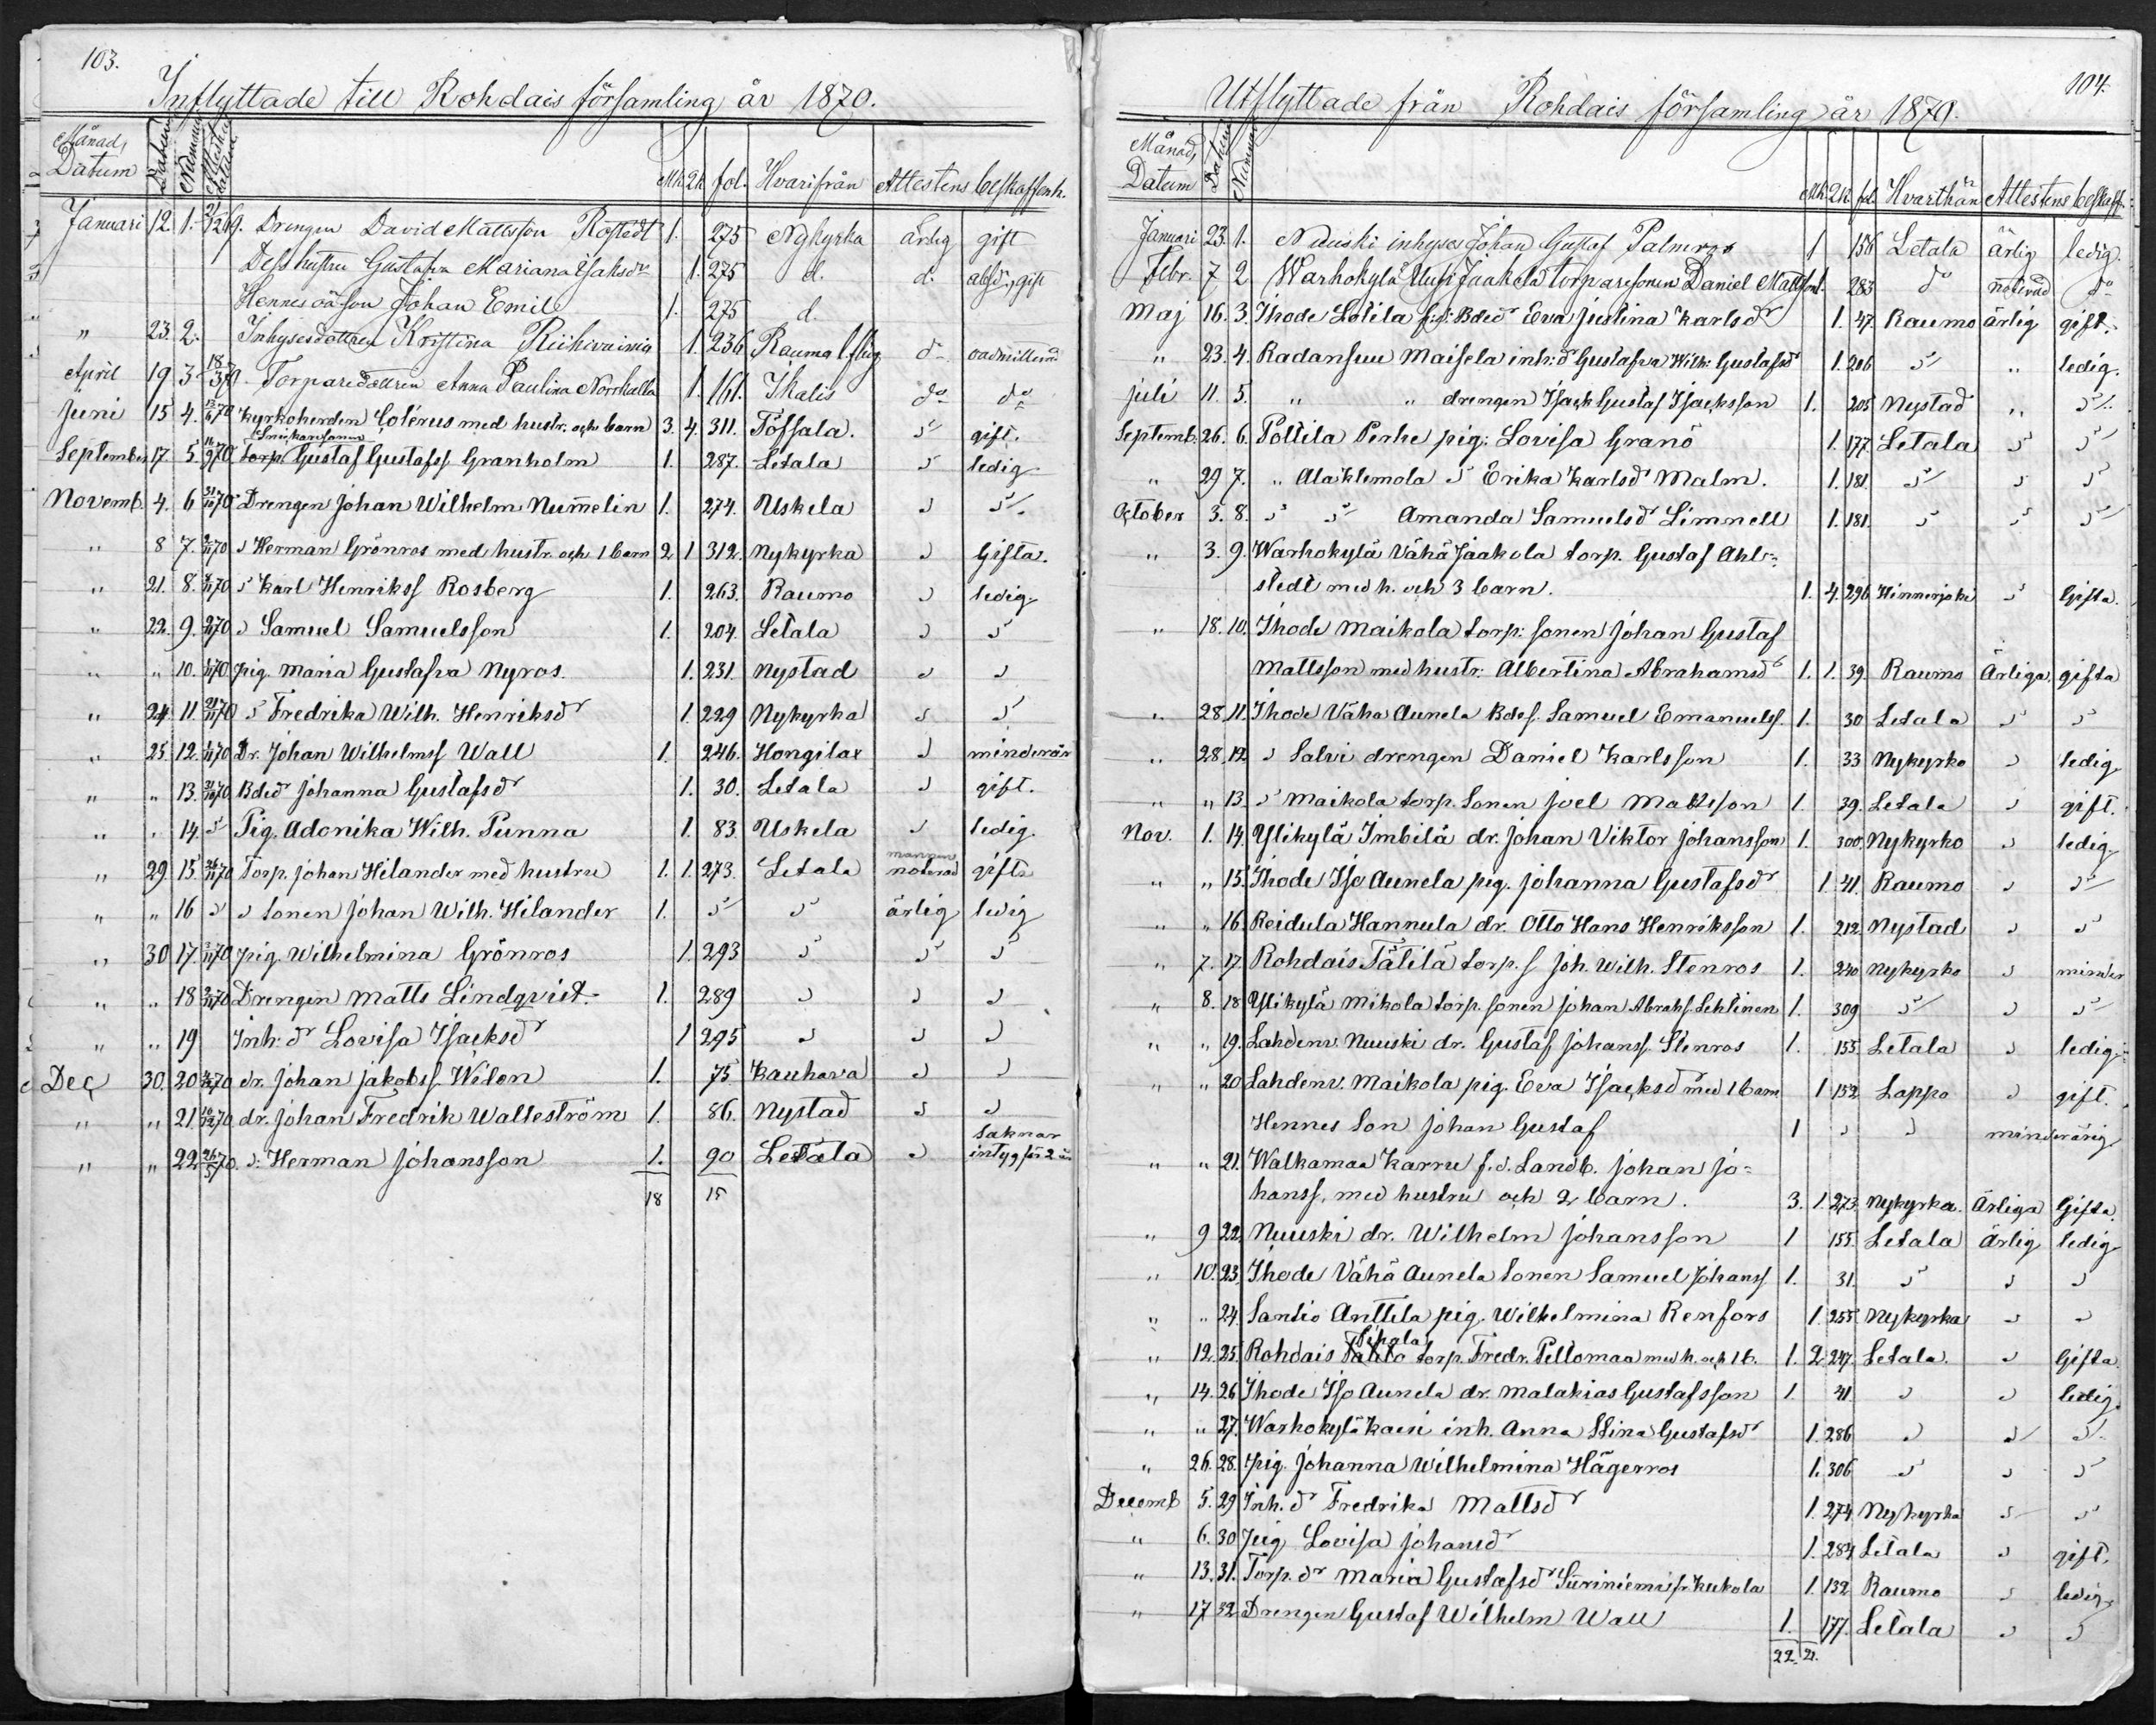 103.
Inflyttade till Rohdais församling år 1870.
Månad, Datum Datum Nummer Mk. Qk. fol. Hvarifrån Attestens beskaffenh.
Januari 12. 1. 21/12 69. Drengen David Mattsson Rostedt 1. 275 Nykyrka ärlig gift
Dess hustru Gustafva Mariana Isaksdr 1. 275 d. d. absd., gift
Hennes oä son Johan Emil 1. 275 d.
" 23. 2. Inhysesdottren Kristina Riihivainia 1. 236 Rauma l.förs. do oadmitterad
April 19 3 18/3 70. Torparedottren Anna Paulina Norrkalla 1. 161. Ikalis do do
Juni 15 4. 13/6 70 Kyrkoherden Colérus med hustr. och barn 3. 4. 311. Töfsala. d gift.
September 17 5. 16/9 70 torp. Gustaf Gustafss Granholm 1. 287. Letala d ledig
Novemb. 4. 6 31/10 70 Drengen Johan Wilhelm Nummelin 1. 274. Uskela d d
" 8 7. 2/11 70 d Herman Grönros med hustr. och 1 barn 2 1 312. Nykyrka d Gifta.
" 21. 8. 70 d Karl Henrikss Rosberg 1. 263. Raumo d ledig
" 22. 9. 70 d Samuel Samuelsson 1. 204. Letala d d
" " 10. 70 pig. Maria Gustafva Nyros. 1. 231. Nystad d d
" 24. 11. 21/11 70 d Fredrika Wilh. Henriksdr 1. 229 Nykyrka d d
" 25 12. 70 Dr. Johan Wilhelmss Wall 1. 246. Hongilax d minderår
" " 13. 31/10 70 Bdedr Johanna Gustafsdr 1. 30. Letala d gift.
" " 14. d Pig. Adonika Wilh. Punna 1. 83. Uskela d ledig.
" 29 15 70 Torp. Johan Hilander med hustru 1. 1. 273. Letala mannen noterad gifta
" " 16 d d sonen Johan Wilh. Hilander 1. d d ärlig ledig
" 30 17. 70 pig. Wilhelmina Grönros 1. 293 d d d
" " 18 70 Drengen Matts Lindqvist. 1. 289 d d d
" " 19 Inh. dr Lovisa Isacksdr 1 295 d d d
Dec 30. 20 70 dr. Johan Jakobss. Wilen 1. 75 Kauhava d d
" " 21. 70 dr. Johan Fredrik Walleström 1. 86. Nystad d d
" " 22 26/5 70. d: Herman Johansson 1. 90 Letala d saknar intyg för 2 år
18 15
104.
Utflyttade från Rohdais församling år 1870.
Månad, Datum Datum Nummer Mk. Qk. fol. Hvarthän Attestens beskaff.
Januari 23. 1. Nuuski inhyses Johan Gustaf Palmroo 1 156 Letala ärlig ledig.
Febr. 7 2 Warhokylä Uusi Jaakola torparesonen Daniel Mattsson 1. 283 do noterad do
Maj 16. 3. Ihode Lolila f.d. Bdedr Eva Justina Karlsdr 1. 47. Raumo ärlig gift.
" 23. 4. Radansuu Maisela inh: dr Gustafva Wilh: Gustafsdr 1. 206 d " ledig.
Juli 11. 5. " " drengen Isack Gustaf Isacksson 1. 205 Nystad " d
Septemb. 26. 6. Pottila Perhe pig: Lovisa Granö 1. 177. Letala d d
" 29 7. " Alaklemola d Erika Karlsdr Malm. 1. 181. d d d
October 3. 8. d d Amanda Samuelsdr Limnell 1. 181. d d d
" 3. 9. Warhokylä Vähä Jaakola torp. Gustaf Ahl-
stedt med h. och 3 barn. 1. 4. 296 Hinnerjoki d Gifta.
" 18. 10. Ihode Maikola torp: sonen Johan Gustaf
Mattsson med hustr. Albertina Abrahamsdr 1. 1. 39. Raumo Ärliga. gifta
" 28. 11. Ihode Vähä Aunela Bdes. Samuel Emanuelss. 1. 30 Letala d d
" 28. 12. d Salvi drengen Daniel Karlsson 1. 33 Nykyrko d ledig
" " 13 d Maikola torp. sonen Joel Mattsson 1. 39. Letala d gift.
Nov. 1. 14. Ylikylä Imbilä dr. Johan Viktor Johansson 1. 300. Nykyrko d ledig
" " 15. Ihode Iso Aunela pig. Johanna Gustafsdr 1 41. Raumo d d
" " 16. Reidula Hannula dr. Otto Hans Henriksson 1. 212. Nystad d d
" 7. 17. Rohdais Tätilä torp. s Joh. Wilh. Stenros 1. 240 Nykyrko d minder
" 8. 18 Ylikylä Mikola torp. sonen Johan Abrahs. Lehtinen 1. 309 d d d
" " 19. Lahdenv. Nuuski dr. Gustaf Johanss. Stenros 1. 155. Letala d ledig
" " 20 Lahdenv. Maikola pig. Eva Isacksdr med 1 barn 1 152 Lappo d gift.
Hennes son Johan Gustaf 1 d d minderårig
" " 21. Walkamaa Karru f.d. Landb. Johan Jo=
hanss. med hustru och 2 barn. 3. 1. 273. Nykyrka. Ärliga Gifta.
" 9 22. Nuuski dr. Wilhelm Johansson 1 155. Letala ärlig ledig
" 10. 23. Ihode Vähä Aunela sonen Samuel Johanss. 1. 31. d d d
" " 24. Santio Anttila pig. Wilhelmina Renfors 1. 255. Nykyrka d d
" 12. 25. Rohdais Sipala torp. Fredr. Pellomaa med h. och 1 b. 1. 2 247. Letala. d Gifta.
" 14. 26 Ihode Iso Aunela dr. Malakias Gustafsson 1. 41. d d ledig.
" " 27. Warhokylä Kaesi inh. Anna Stina Gustafsdr 1. 286 d d d.
" 26. 28. pig. Johanna Wilhelmina Hägerros 1. 306 d d d
Decemb 5. 29 Inh. dr Fredrika Mattsdr 1. 274 Nykyrka d d
" 6. 30 Pig. Lovisa Johansdr 1. 284 Letala d gift.
" 13. 31. Torp. dr Maria Gustafsdr Suriniemi fr. Kukola 1. 132 Raumo d ledig
" 17 32 Drengen Gustaf Wilhelm Wall 1. 177. Letala d d
22. 21.